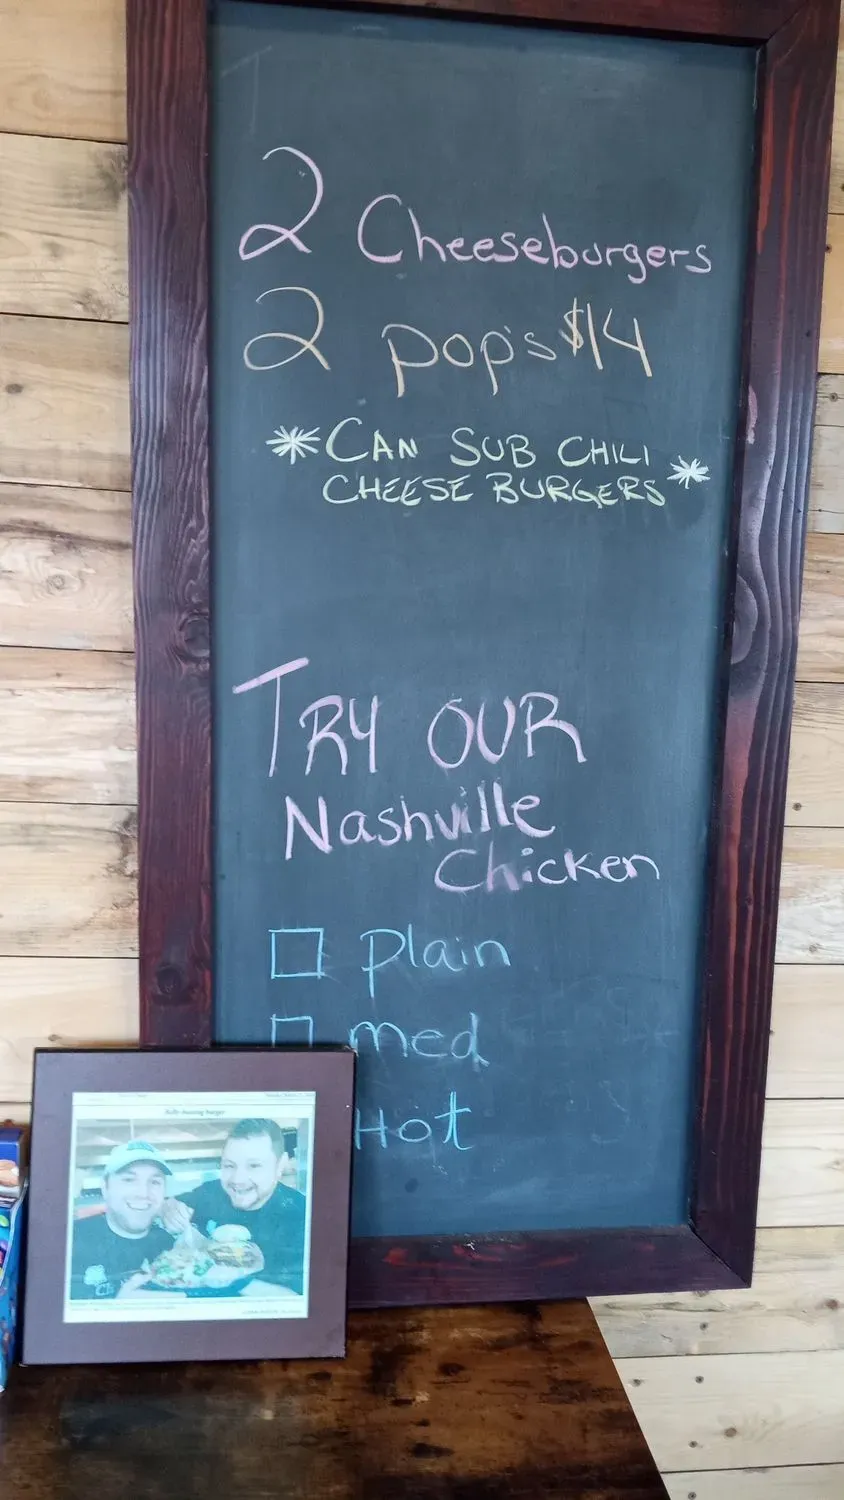 2 Cheeseburgers
2 pop's $14
*CAN SUB CHILI *
CHEESE BURGERS
TRY OUR
Nashville
Chicken
plain
med
Hot
Belly-busting burger